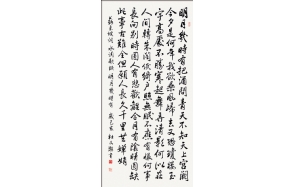 明月幾時有把酒問青天不知天上宮闕
今夕是何年我欲乘風歸去又恐瓊樓玉
宇高處不勝寒起舞弄清影何似在
人間轉朱閣低綺戶照無眠不應有恨何事
長向別時圓人有悲歡離合月有陰晴圓缺
此事古難全但願人長久千里共嬋娟
蘇東坡詞水調歌頭明月幾時有